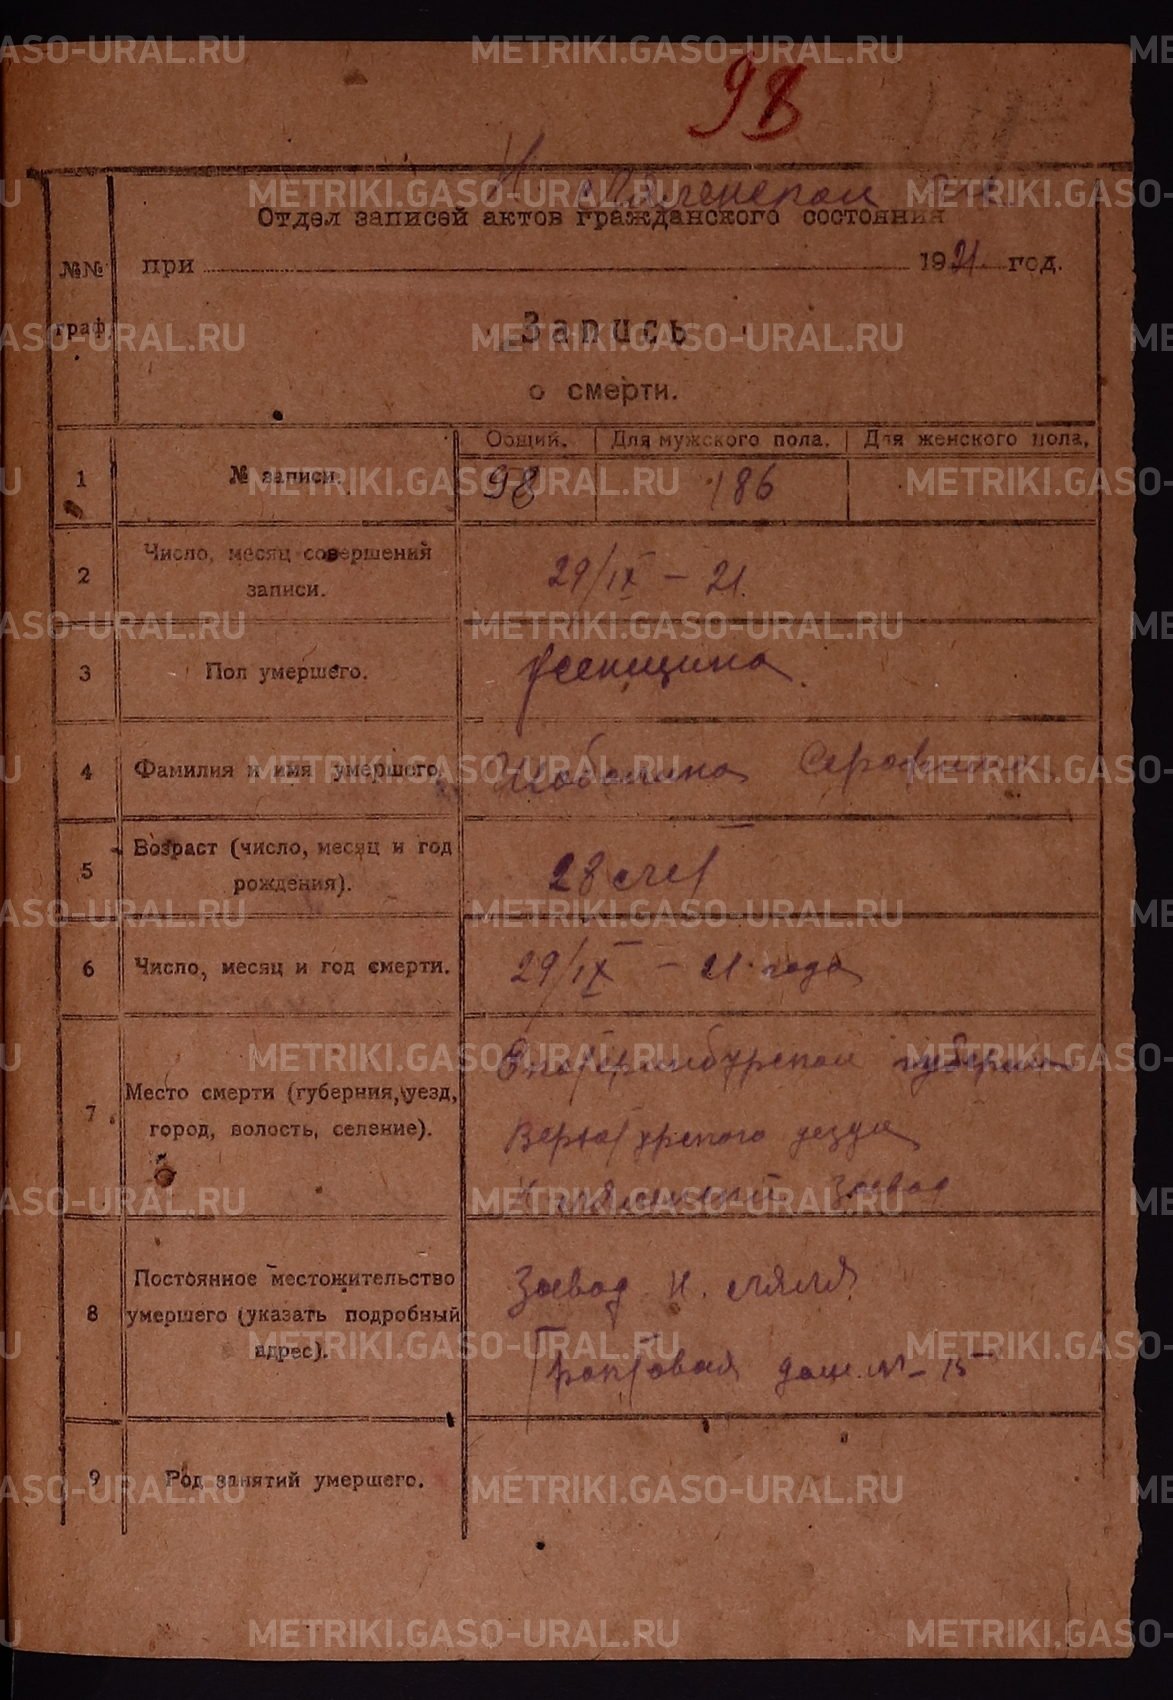 98
Н. Лялинском
Отдел записей актов гражданского состояния
№№ граф.
при 1921 год.
Запись
о смерти.
Общий. Для мужского пола. Для женского пола.
1 № записи. 98 186
2 Число, месяц совершения записи. 29/IX – 21.
3 Пол умершего. женщина
4 Фамилия и имя умершего. Серафима
5 Возраст (число, месяц и год рождения). 28 лет
6 Число, месяц и год смерти. 29/IX – 21 года
7 Место смерти (губерния, уезд, город, волость, селение). Екатеринбурской губернии
Верхотурского уезда
Н Лялинский завод
8 Постоянное местожительство умершего (указать подробный адрес). Завод Н. Ляля
Трактовая дом № – 15
9 Род занятий умершего.
METRIKI.GASO-URAL.RU